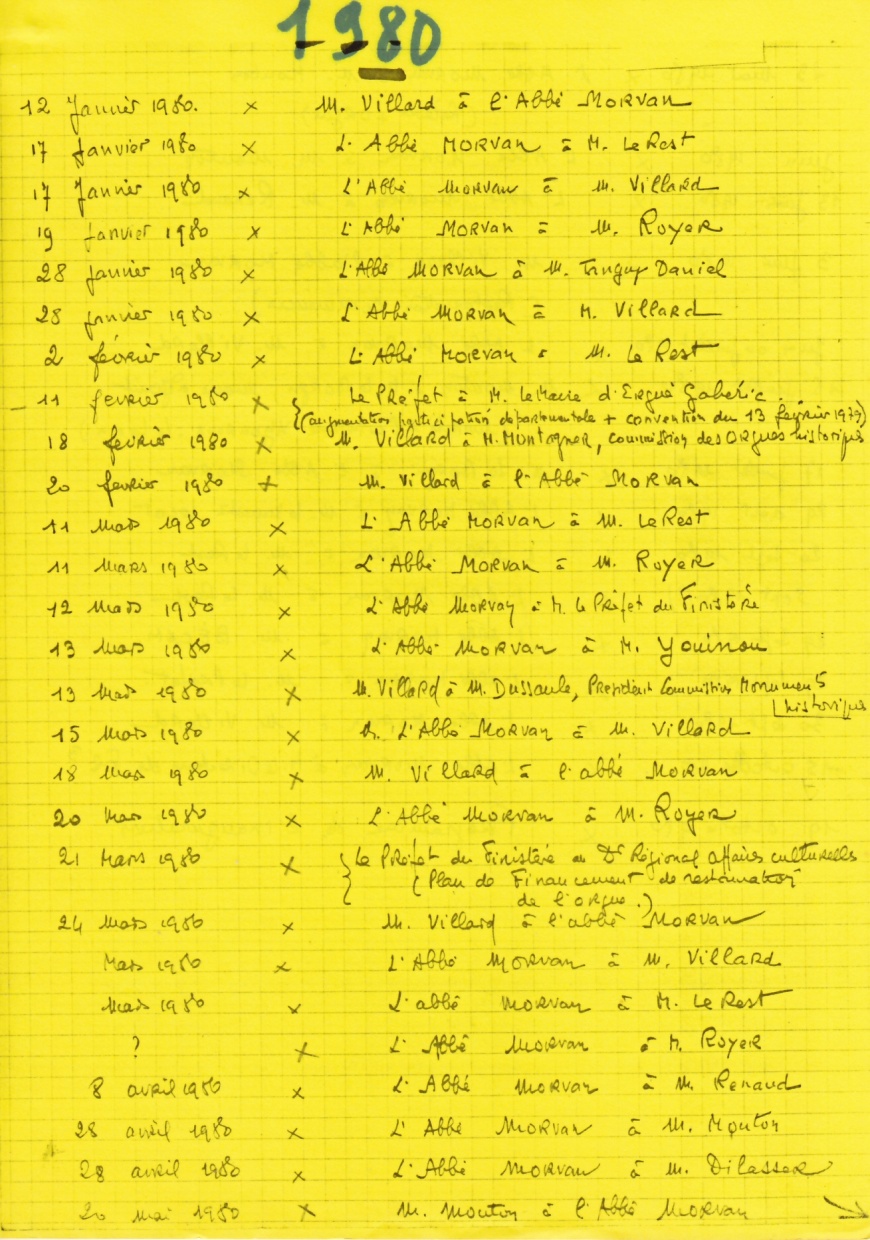 1980
12 Janvier 1980. x M. Villard à l'Abbé MORVAN
17 Janvier 1980 x L'Abbé MORVAN à M. Le Rest
17 Janvier 1980 x L'Abbé MORVAN à M. Villard
19 Janvier 1980 x L'Abbé MORVAN à M. Royer
28 Janvier 1980 x L'Abbé MORVAN à M. Tanguy Daniel
28 janvier 1980 x L'Abbé MORVAN à M. Villard
2 février 1980 x L'Abbé MORVAN à M. Le Rest
11 fevrier 1980 x Le Préfet à M. le Maire d'Ergué Gabéric.
(augmentation participation départementale + convention du 13 février 1979)
18 février 1980 x M. Villard à M. Montagner, commission des ORgues historiques
20 fevrier 1980 x M. Villard à l'Abbé MORVAN
11 Mars 1980 x L'Abbé MORVAN à M. Le Rest
11 Mars 1980 x L'Abbé MORVAN à M. Royer
12 Mars 1980 x L'Abbé MORVAN à M. le Préfet du Finistère
13 Mars 1980 x L'Abbé MORVAN à M. Youinou
13 Mars 1980 x M. Villard à M. Dussaule, Président Commission Monuments
historiques
15 Mars 1980 x L'Abbé MORVAN à M. Villard
18 Mars 1980 x M. Villard à l'abbé MORVAN
20 Mars 1980 x L'Abbé MORVAN à M. Royer
21 Mars 1980 x Le Préfet du Finistère au Dr Régional affaires culturelles
(Plan de Financement de restauration
de l'orgue.)
24 Mars 1980 x M. Villard à l'abbé MORVAN
Mars 1980 x L'Abbé MORVAN à M. Villard
Mars 1980 x L'abbé MORVAN à M. Le Rest
? x L'Abbé MORVAN à M. Royer
8 avril 1980 x L'Abbé MORVAN à M. Renaud
28 avril 1980 x L'Abbé MORVAN à M. Mouton
28 avril 1980 x L'Abbé MORVAN à M. Dilasser
20 mai 1980 x M. Mouton à l'Abbé MORVAN